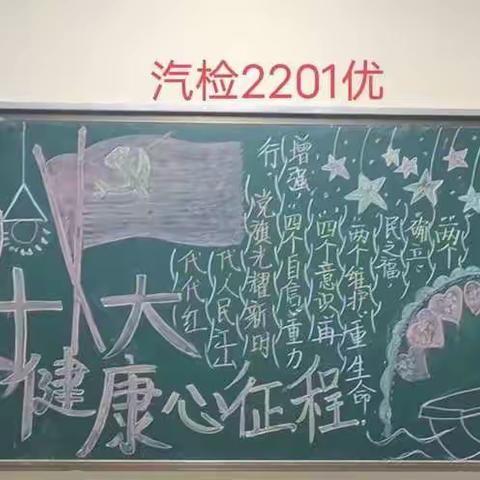 汽检2201优
两个
确立,
民之福,
两个维护,重生命,
四个意识,再
增强 四个自信,重力
行 党旗光耀新的
代人民江山
代代红
十大
健康心征程